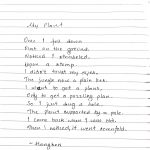 My Plant
Once I fell down
Flat on the ground.
Noticed I stumbled
Upon a stump.
I didn't trust my eyes,
The jungle now a plain bar.
I want to get a plant,
Only to get a puzzling plan.
So I just dug a hole.
The plant supported by a pole.
I come back when I was old.
When I noticed, it went